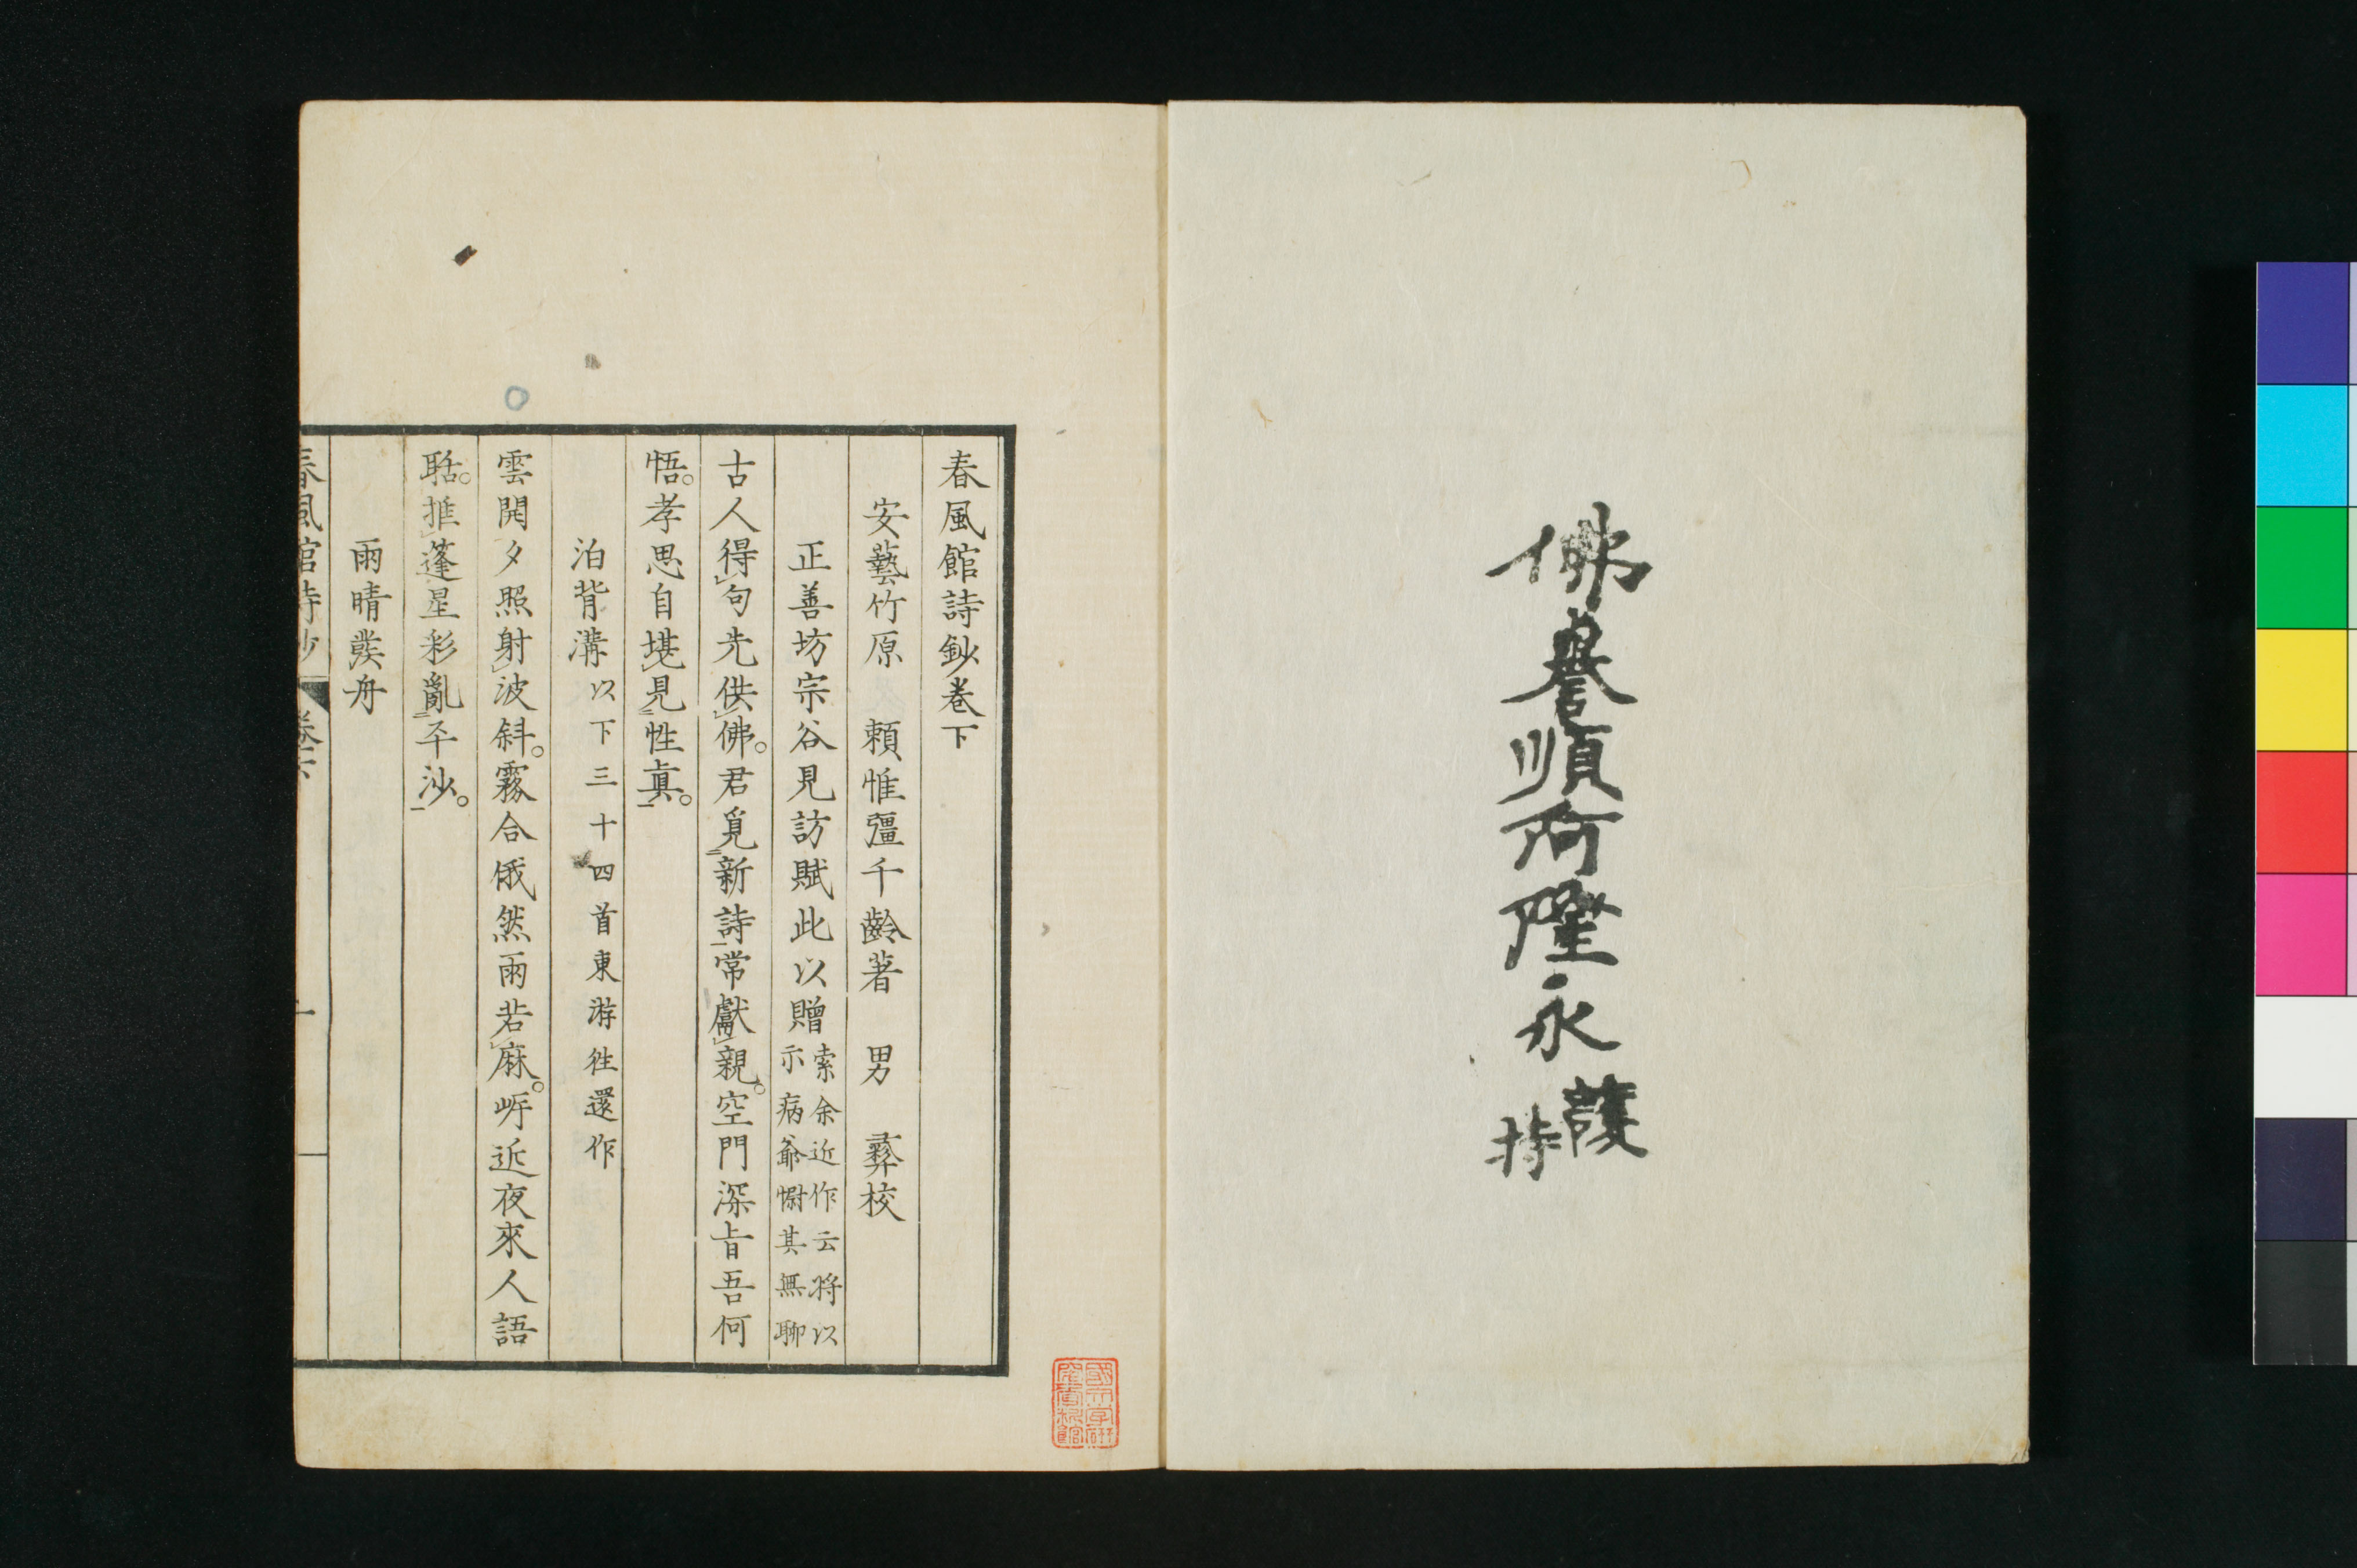 佛譽順阿隆永護
持
春風館詩鈔卷下
安藝竹原 賴惟彊千齡著 男 彝校
正善坊宗谷見訪賦此以贈 索余近作云將以
示病爺慰其無聊
古人得句先供佛。君覓新詩常獻親。空門深旨吾何
悟。孝思自堪見性眞。
泊背溝 以下三十四首東游往還作
雲開夕照射波斜。霧合俄然雨若麻。岸近夜來人語
聒。推蓬星彩亂平沙。
雨晴發舟
春風館詩鈔 卷下 一